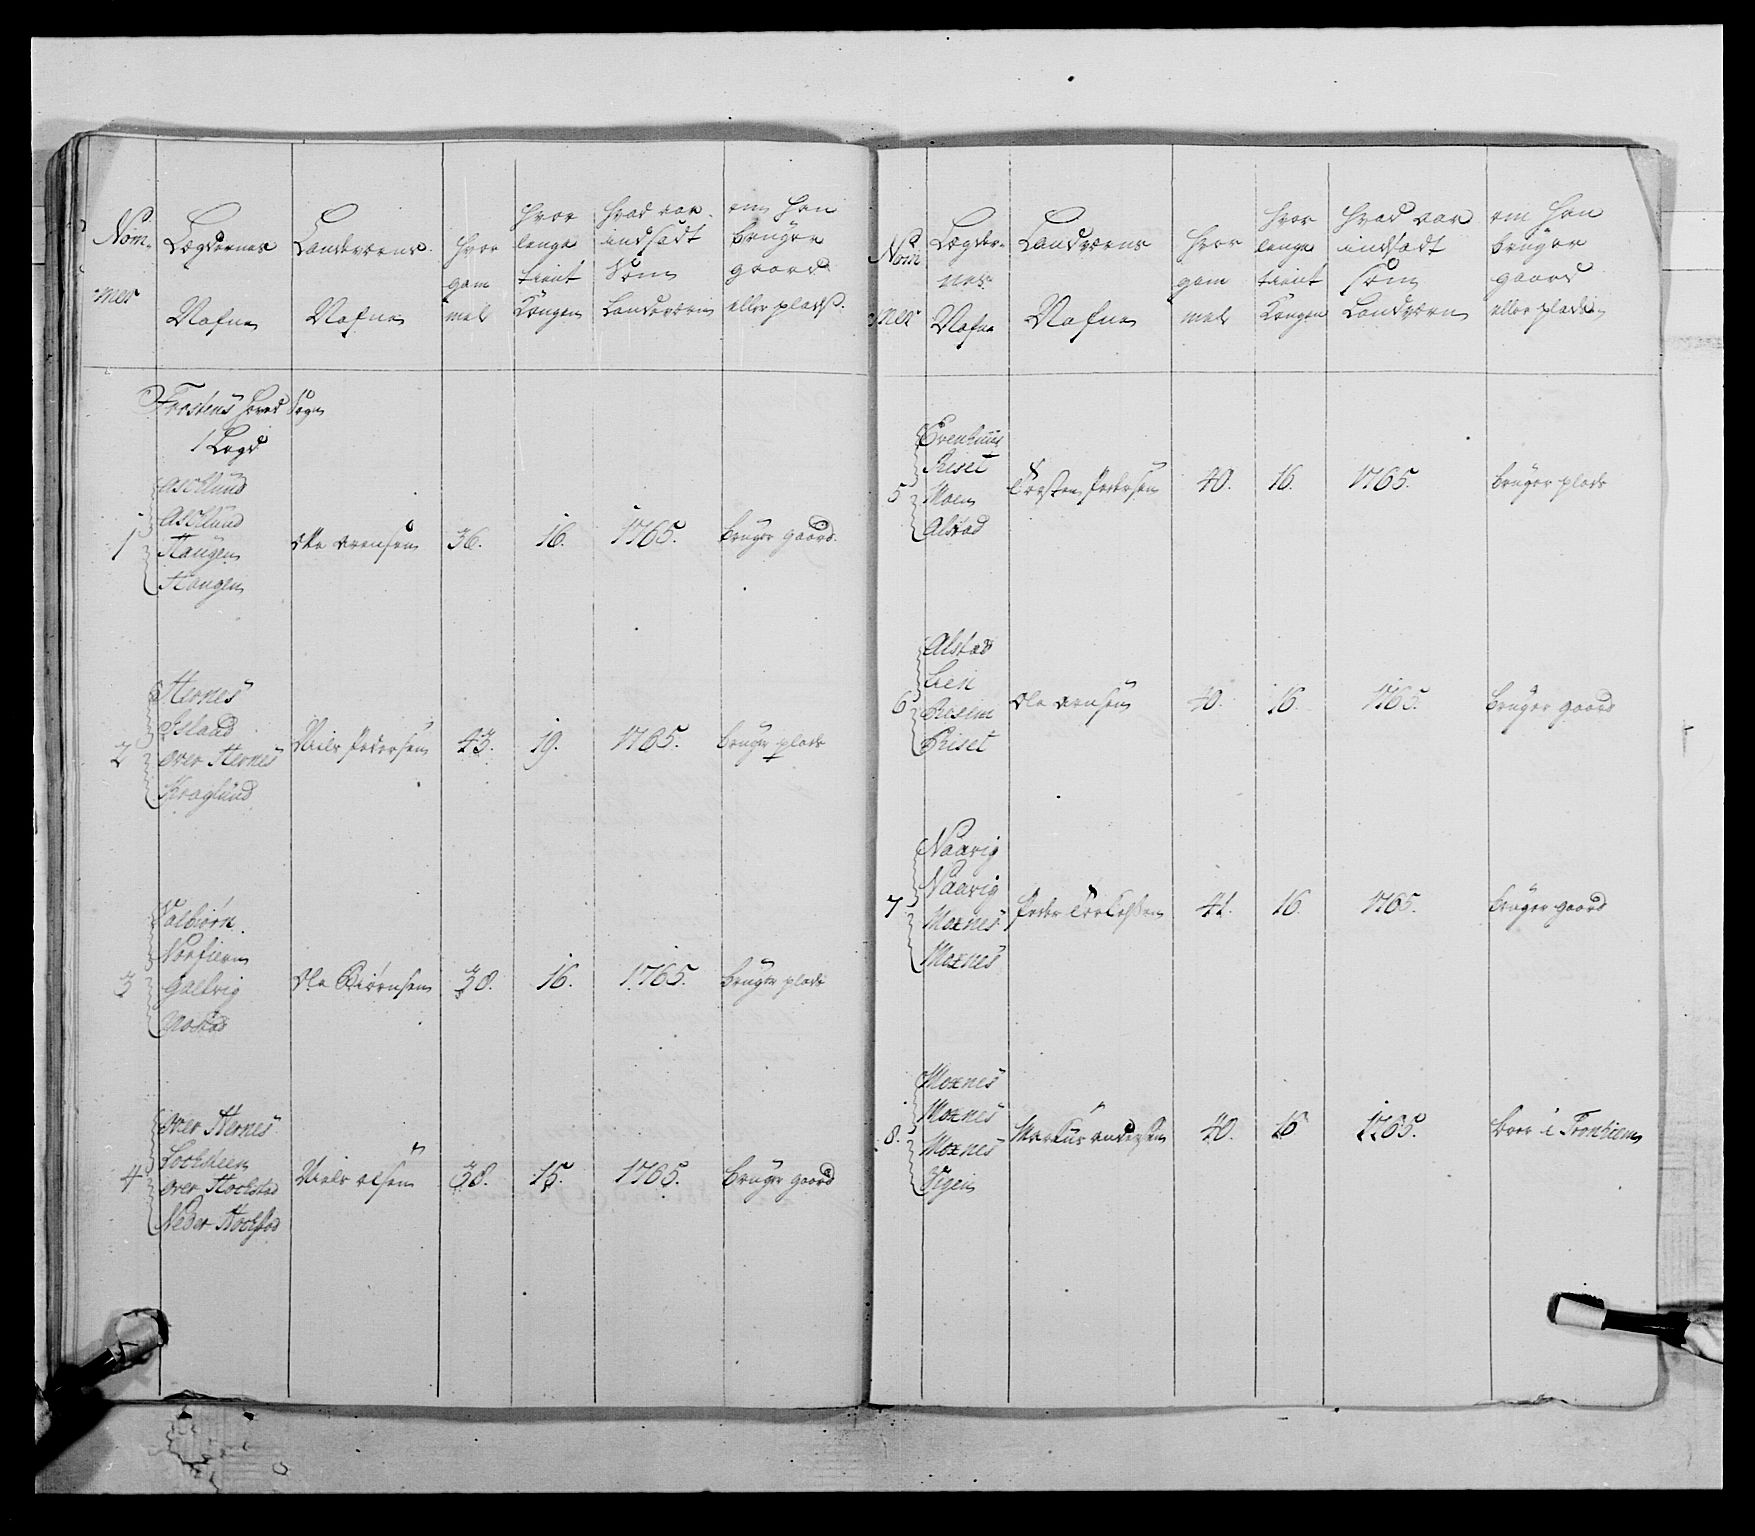 Nom-
mer
Lægdernes
Nafne
Landværns
Nafne
Hvor
gam
mel
Hvor
lenge
tient
Kongen
Hvad aar
indsadt
Som
Landværn
om han
bruger
gaard
eller plads.
Frostens Hoved Sogn
1 Legd
1
Aschlund
Aschlund
Haugen
Haugen
Ole Arensen
36.
16.
1765.
bruger gaard.
2
Hernes
Island
over Hernes
Kraglund
Niels Pedersen
43.
19.
1765.
bruger plads
3
Valbiørn
Norfiern
Galtvig
Mostad
Ole Biørnsen
38.
16.
1765.
bruger plads
4
over Hernes
Lochsteen
over Hochstad
Neder Hochstad
Niels olsen
38.
15.
1765.
bruger gaard
Nom
mer
Legder-
nes
Nafne
Landværns
Nafne
Hvor
gam
mel
Hvor
lenge
tient
Kongen
Hvad aar
indsadt
som
Landværn
om han
bruger
gaard
eller pladsen
5
Evenhuus
Riset
Moen
Alstad
Torsten Pedersen
40.
16.
1765.
bruger plads
6
Alstad
Lien
Rosem
Riset
Ole Arnsen
40.
16.
1765.
bruger gaard
7
Naavig
Naavig
Moxnes
Moxnes
Peder Torkelsen
41.
16.
1765.
bruger gaard
8.
Moxnes
Moxnes
Moxnes
Vigen
Markus andersen
40.
16
1765.
boer i Tronhiem